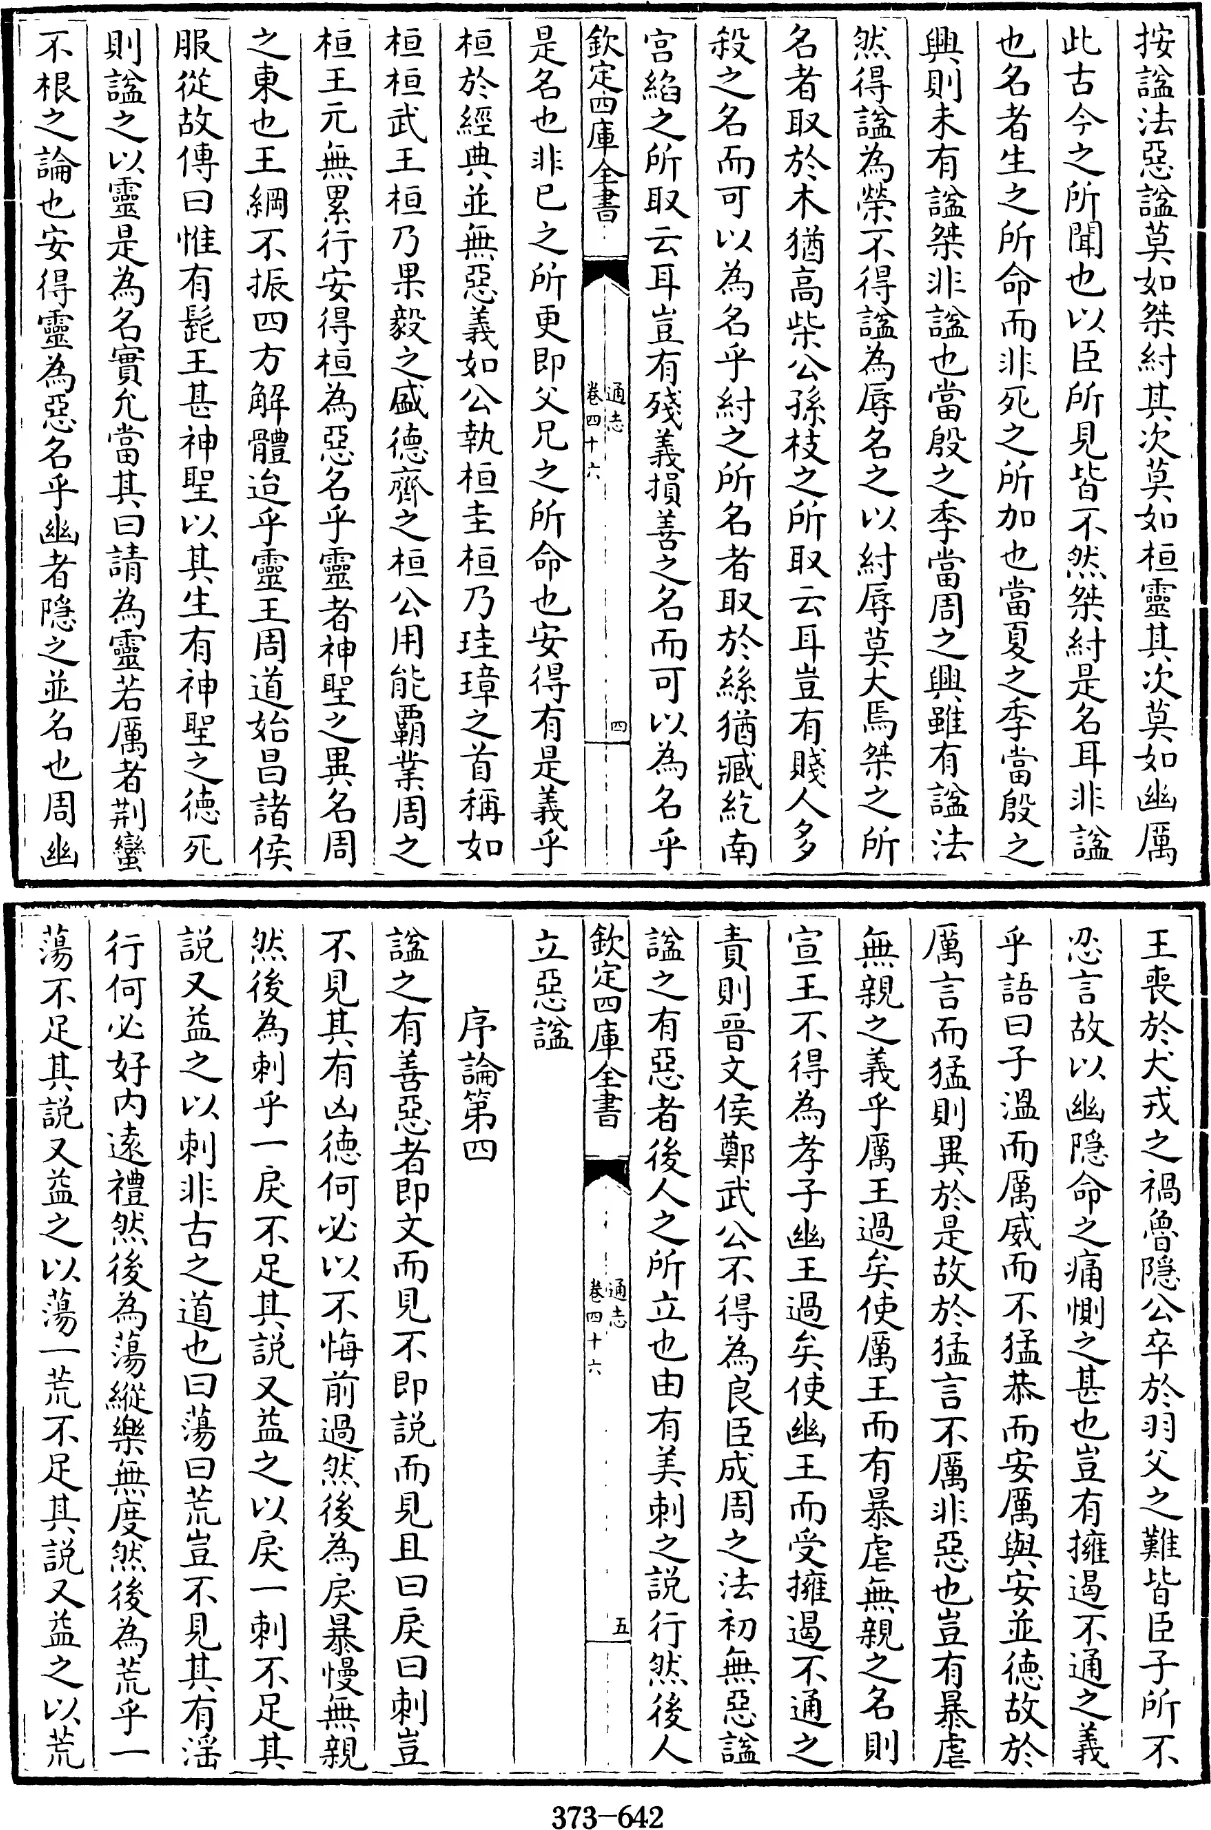 按諡法惡諡莫如桀紂其次莫如桓靈其次莫如幽厲
此古今之所聞也以臣所見皆不然桀紂是名耳非諡
也名者生之所命而非死之所加也當夏之季當殷之
興則未有諡桀非諡也當殷之季當周之興雖有諡法
然得諡為榮不得諡為辱名之以紂辱莫大焉桀之所
名者取於木猶高柴公孫枝之所取云耳豈有賤人多
殺之名而可以為名乎紂之所名者取於絲猶臧紇南
宮縚之所取云耳豈有殘義損善之名而可以為名乎
欽定四庫全書
通志
卷四十六
四
是名也非已之所更即父兄之所命也安得有是義乎
桓於經典並無惡義如公執桓圭桓乃珪璋之首稱如
桓桓武王桓乃果毅之盛德齊之桓公用能霸業周之
桓王元無累行安得桓為惡名乎靈者神聖之異名周
之東也王綱不振四方解體迨乎靈王周道始昌諸侯
服從故傳曰惟有髭王甚神聖以其生有神聖之徳死
則諡之以靈是為名實允當其曰請為靈若厲者荆蠻
不根之論也安得靈為惡名乎幽者隠之並名也周幽
王喪於犬戎之禍魯隠公卒於羽父之難皆臣子所不
忍言故以幽隠命之痛惻之甚也豈有擁遏不通之義
乎語曰子溫而厲威而不猛恭而安厲與安並德故於
厲言而猛則異於是故於猛言不厲非惡也豈有暴虐
無親之義乎厲王過矣使厲王而有暴虐無親之名則
宣王不得為孝子幽王過矣使幽王而受擁遏不通之
責則晉文侯鄭武公不得為良臣成周之法初無惡諡
諡之有惡者後人之所立也由有美刺之說行然後人
欽定四庫全書
通志
卷四十六
五
立惡諡
序論第四
諡之有善惡者即文而見不即説而見且曰戾曰刺豈
不見其有凶徳何必以不悔前過然後為戾暴慢無親
然後為刺乎一戾不足其説又益之以戾一刺不足其
説又益之以刺非古之道也曰蕩曰荒豈不見其有淫
行何必好内逺禮然後為蕩縱樂無度然後為荒乎一
蕩不足其説又益之以蕩一荒不足其説又益之以荒
373-642